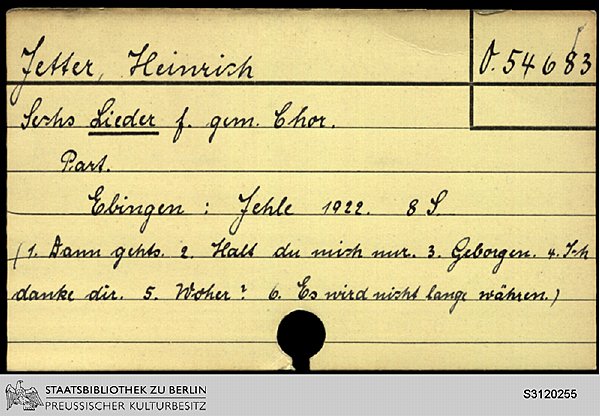 Jetter, Heinrich
O. 54683
Sechs Lieder f. gem. Chor.
Part.
Ebingen : Jehle 1922. 8 S.
(1. Dann gehts. 2. Halt du mich nur. 3. Geborgen. 4. Ich
danke dir. 5. Woher? 6. Es wird nicht lange währen.)
STAATSBIBLIOTHEK ZU BERLIN
PREUSSISCHER KULTURBESITZ
S3120255